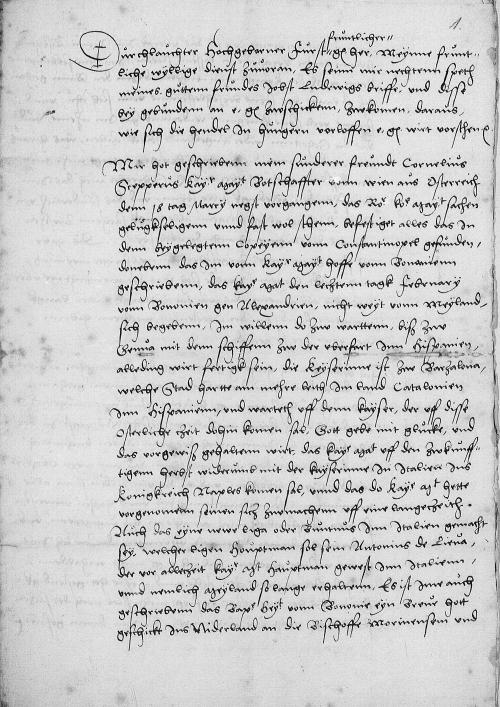 1.
fruntlicher
Durchlauchter Hochgeborner Furst gn her, Meynne frunt-
liche wyllige dienst zuuoran, Es seint mir nechtenn speth
meines guttenn freundes Jobst Ludewigs briffe, und disse
bey gebundenn an e. g. zuschickenn, zukomen, daraus,
wie sich die hendel In Hungern vorloffen e. g. wirt vorsthen
Mir hot geschriebenn mein sunderer freundt Cornelius
Scepperus Kay agayt Botschaffter vonn wien aus Osterreich
denn 18 tag Marty negst vorgangenn, das Ro ko agayt sachen
geluckseligenn unnd fast wol sthenn, befestiget alles das In
denn beygelegtenn Copeyenn vonn Constantinopel gefunden,
donebenn das Im vonn Kay agayt hoffe vonn Bononienn
geschriebenn, das kay agat den letztenn tagk Februarii
vonn Bononien gen Alexandrien, nicht weyt vonn Meyland
sich begebenn, Im willenn do zw warttenn, biß zw
Genua mit denn schiffenn zw der uberfart Inn Hispanien,
alleding wirt fertigk sein, die Keyserinne ist zw Barzalona,
welche Stad hartte am mehre leith Im land Catalonien
Inn Hispanienn, und warteth uff denn kayser, der uff disse
Osterliche zeit dohin komen sal, Gott gebe mit glucke, und
das vorgewiß gehaltenn wirt, das kay agat uff den zukunff-
tigenn herbst widerumb mit der kayserinne In Italien Ins
Konigkreich Naples komen sal, unnd das do Kay agt hette
vorgenomenn seinen sitz zumachenn uff eine lange zeith.
Auch das eyne newe liga oder Buntnus Im Italien gemacht
sey, welcher ligen Houptman sol sein Antonius de Lieua,
der vor allezeit kay agt Hauptman gewest Im Italienn,
unnd nemlich Meyland so lange erhaltenn, Es ist Ime auch
geschriebenn das Bap heyt vonn Bononie eyn Breue hott
geschickt Ins Niderland an die Bischoffe Morinensem und